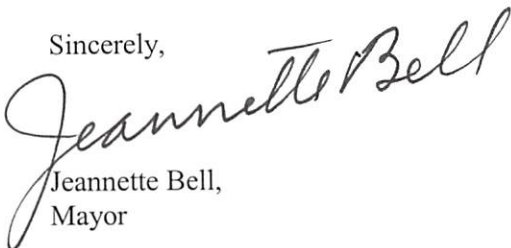 Sincerely,
Jeannette Bell
Jeannette Bell,
Mayor